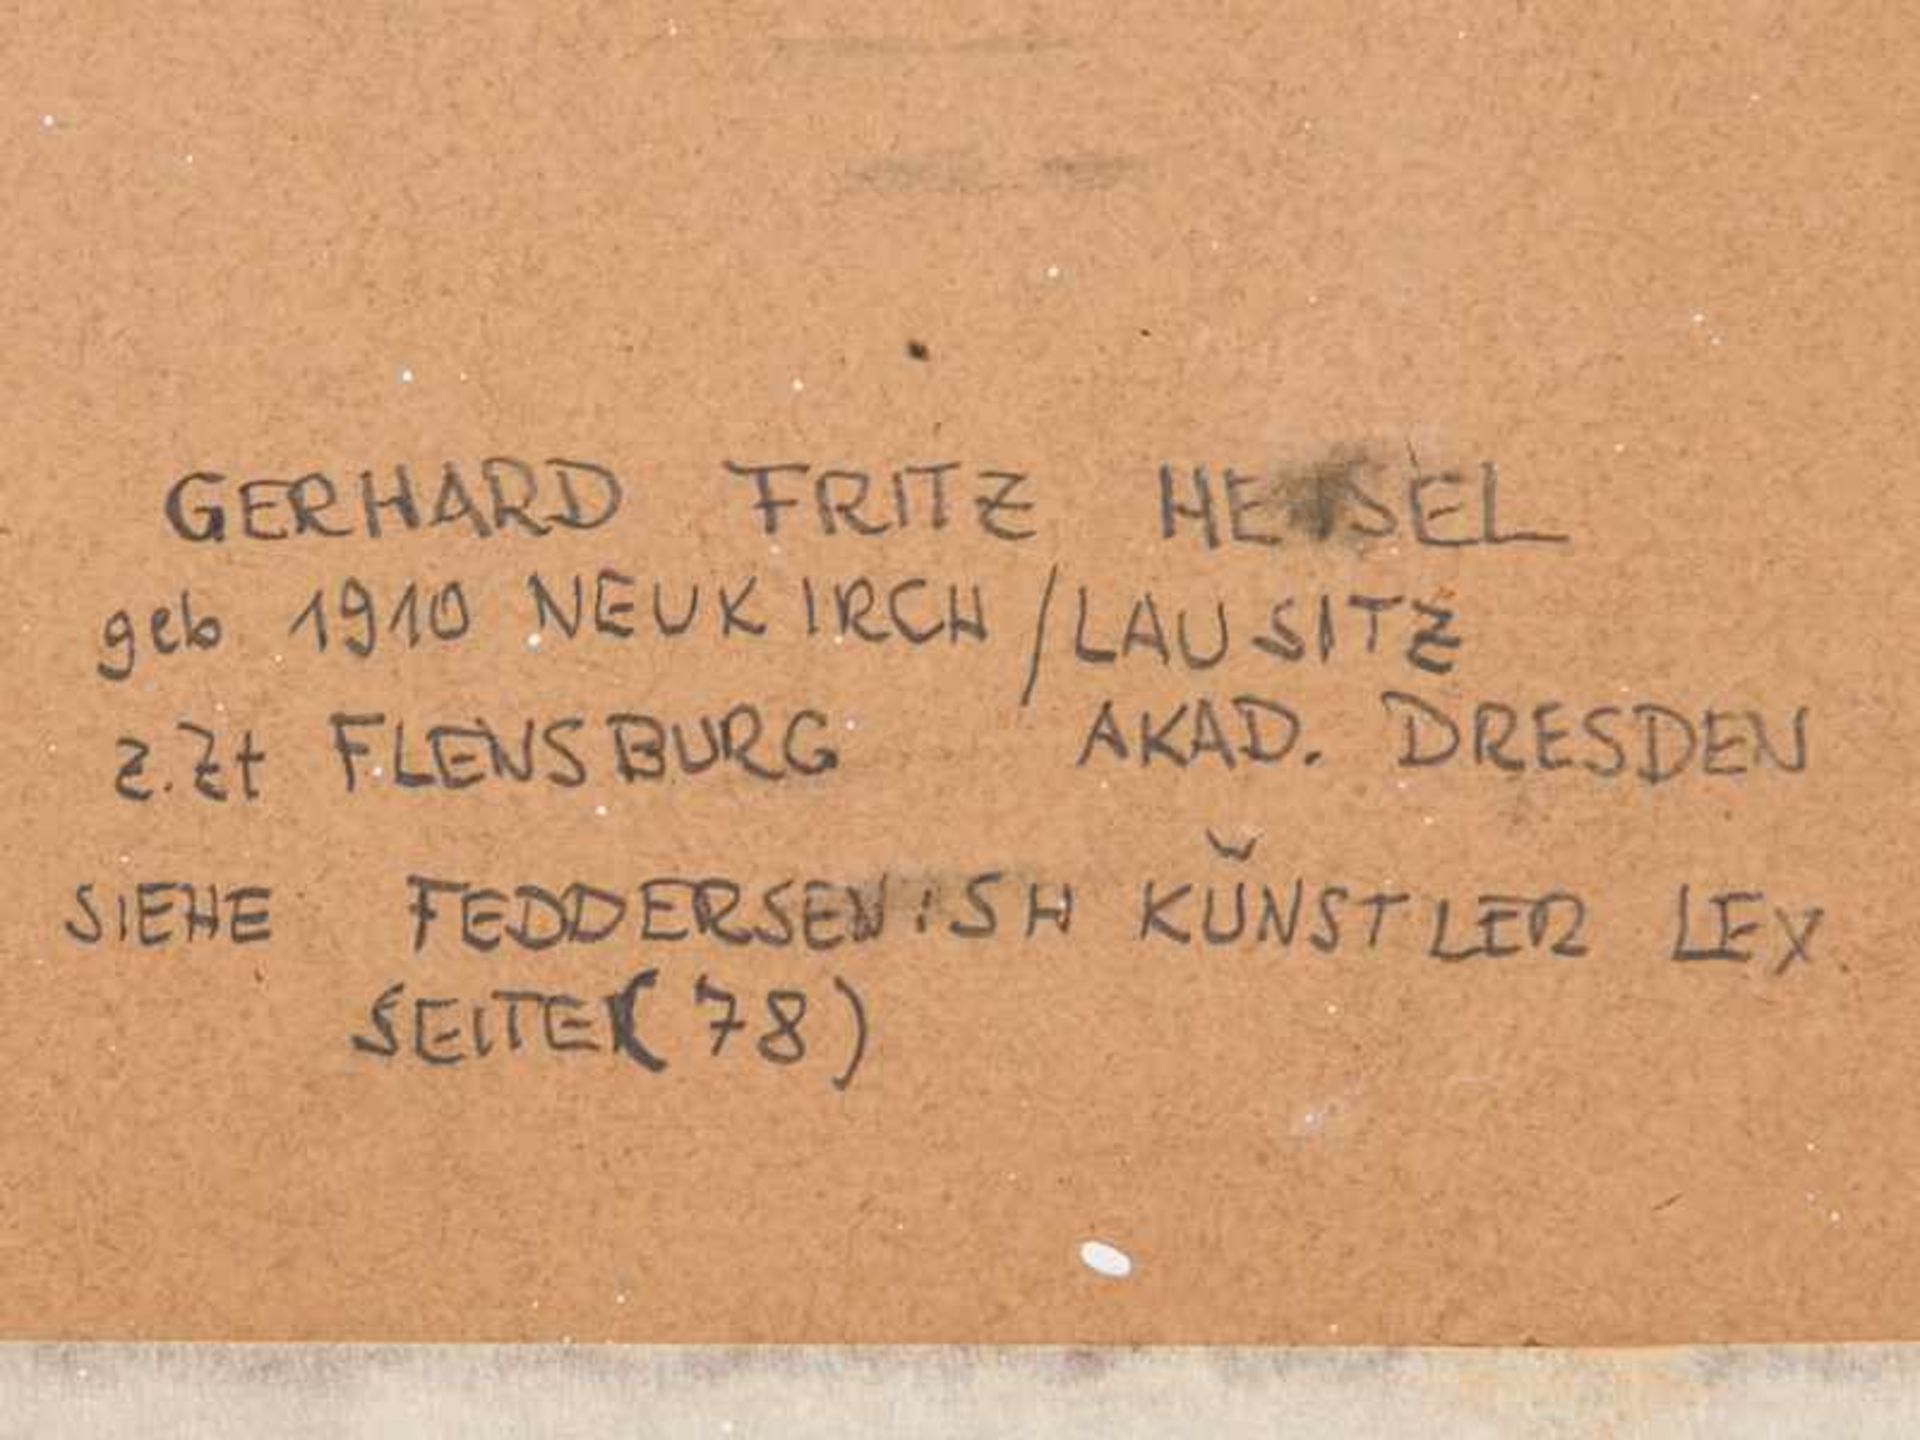 GERHARD FRITZ
geb. 1910 NEUKIRCH / LAUSITZ
z.Zt FLENSBURG AKAD. DRESDEN
SIEHE FEDDERSEN :SH KÜNSTLER LEX
SEITE (78)